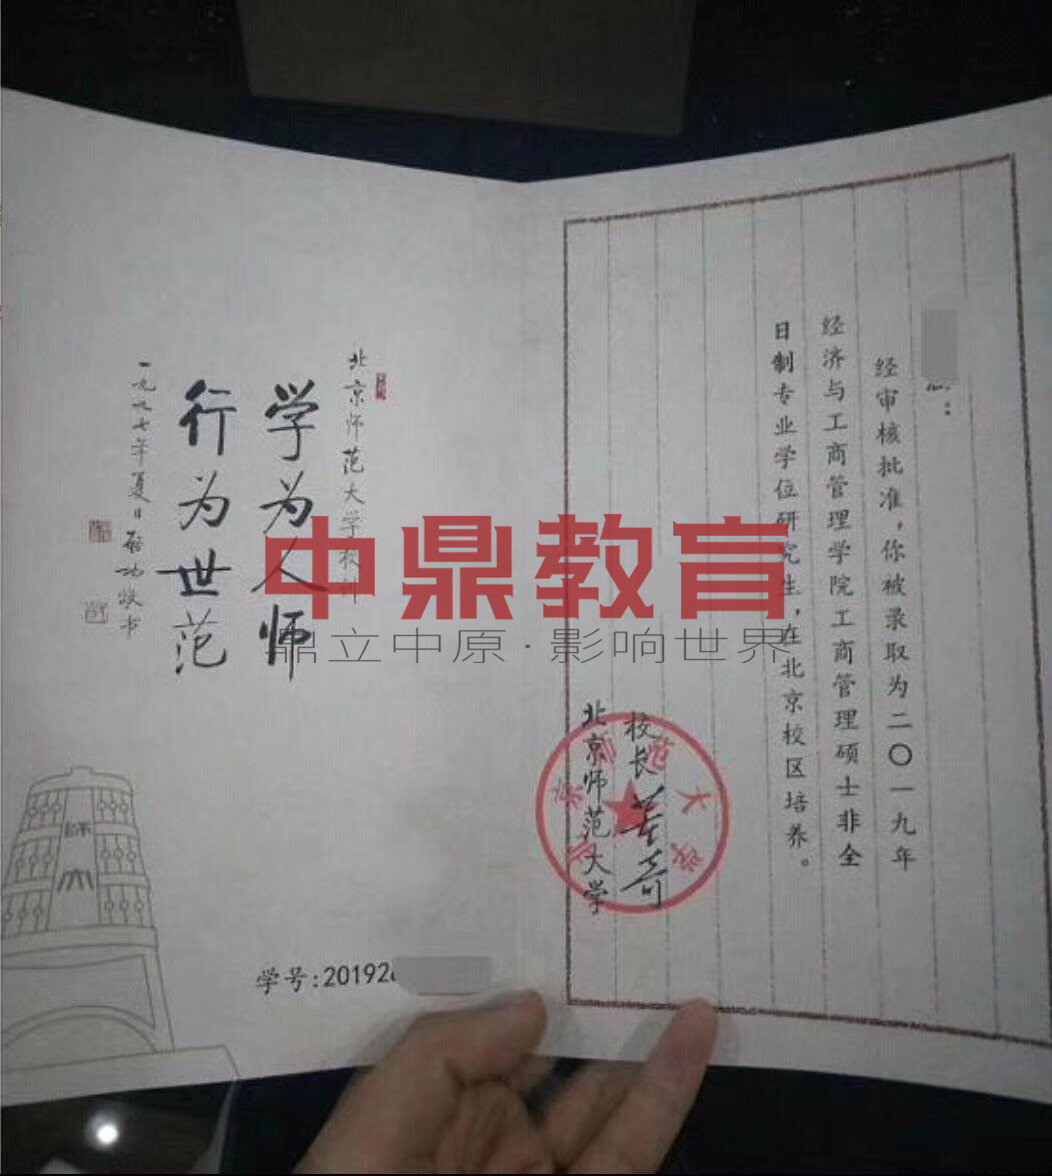 北京师范大学校训
学为人师
行为世范
一九九七年夏日启功敬书
学号:20192
：
经审核批准，你被录取为二〇一九年
经济与工商管理学院工商管理硕士非全
日制专业学位研究生，在北京校区培养。
校长 董奇
北京师范大学
北京师范大学
中鼎教育
鼎立中原·影响世界
師大